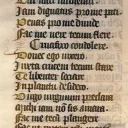 Iam dignatus pro me pati
Penas pro me diuide
Fac me vere tecum flere
Crucifixo condolere
Donec ego vixero
Iuxta crucem tecum stare
Te libenter sociare
In planctu desidero
Virgo virginum preclara
Michi iam non sis amara
Fac me tecum plangere